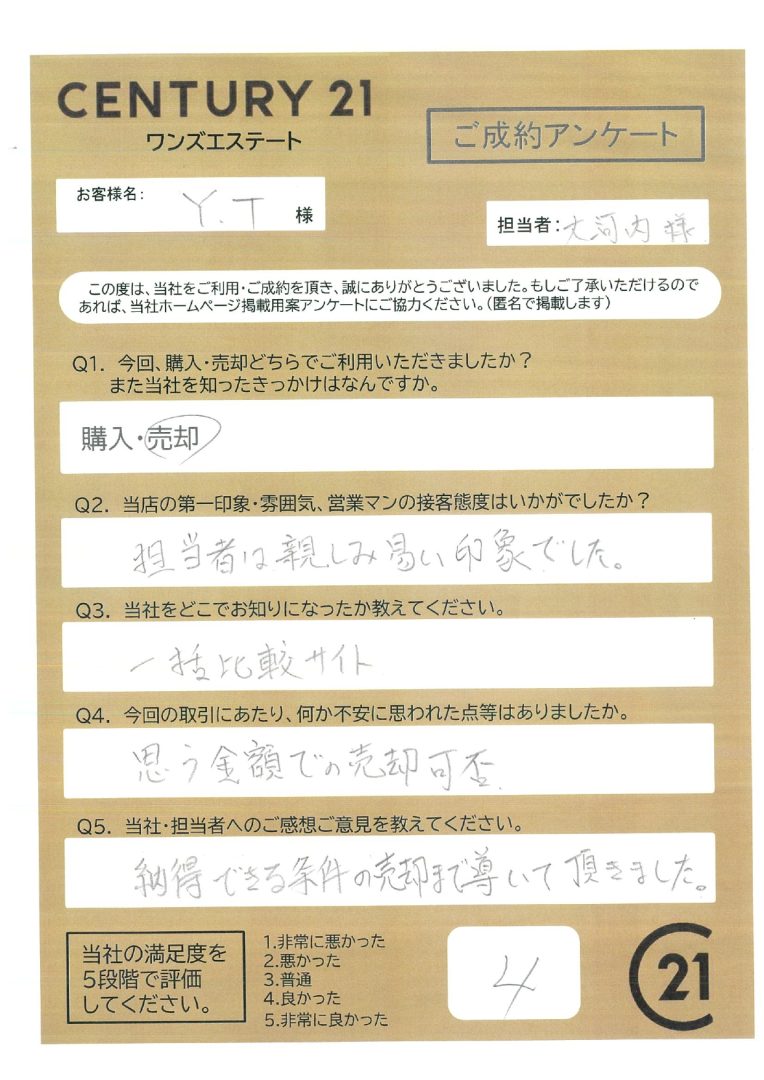 CENTURY 21
ワンズエステート
ご成約アンケート
お客様名: Y.T 様
担当者:大河内様
この度は、当社をご利用・ご成約を頂き、誠にありがとうございました。もしご了承いただけるので
あれば、当社ホームページ掲載用案アンケートにご協力ください。(匿名で掲載します)
Q1. 今回、購入・売却どちらでご利用いただきましたか?
また当社を知ったきっかけはなんですか。
購入・売却
Q2. 当店の第一印象・雰囲気、営業マンの接客態度はいかがでしたか?
担当者は親しみ易い印象でした。
Q3. 当社をどこでお知りになったか教えてください。
一括比較サイト
Q4. 今回の取引にあたり、何か不安に思われた点等はありましたか。
思う金額での売却可否
Q5. 当社・担当者へのご感想ご意見を教えてください。
納得できる条件の売却まで導いて頂きました。
当社の満足度を
5段階で評価
してください。
1.非常に悪かった
2.悪かった
3.普通
4.良かった
5.非常に良かった
4
21